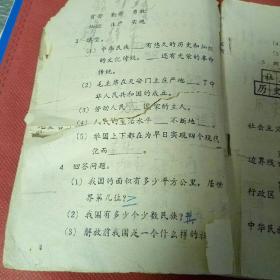 3 填空。
(1) 中华民族__有悠久的历史和灿烂
的文化传统，__还有光荣的革命
传统。
(2) 毛主席在天安门上庄严地__了中
华人民共和国的成立。
(3) 劳动人民__国家的主人。
(4) 人民的生活水平__不断地__。
(5) 举国上下都在为早日实现四个现代
化而__。
4 回答问题。
(1) 我国的面积有多少平方公里，居世
界第几位？
(2) 我国有多少个少数民族？
(3) 解放前我国是一个什么样的社
历史
社会主义
边界线
行政区
中华民